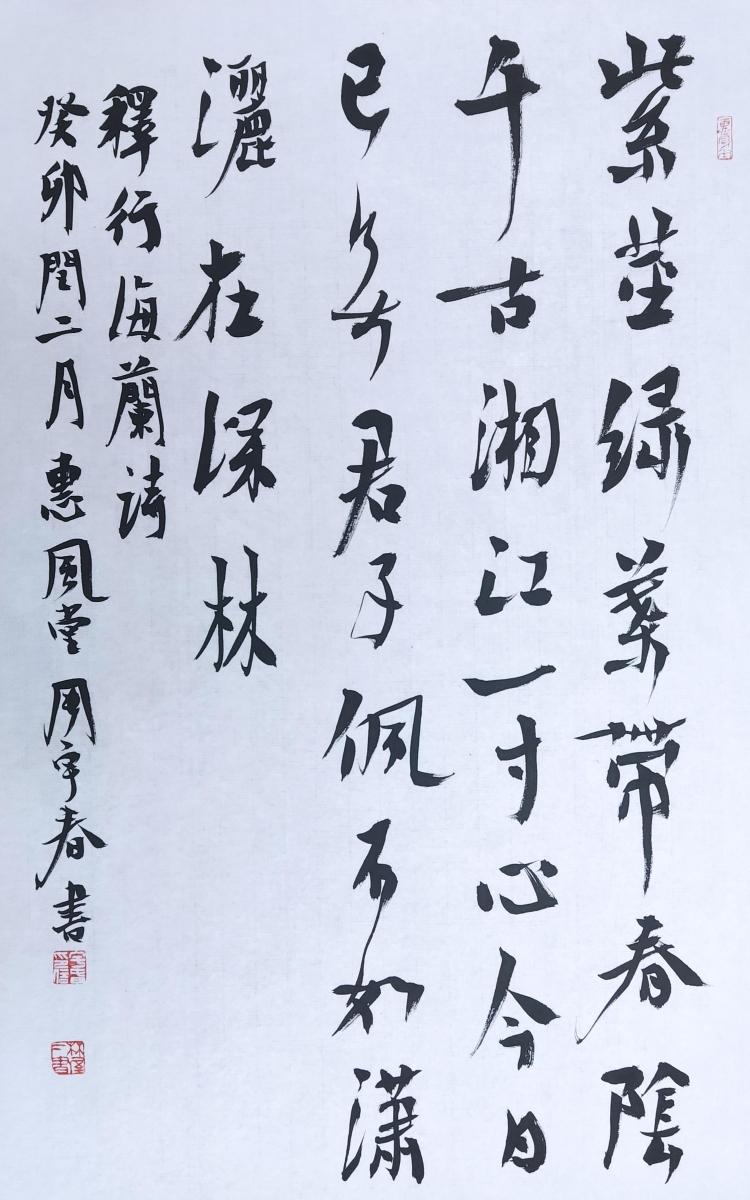 紫莖绿葉帶春陰
千古湘江一寸心今日
已无君子佩不如瀟
灑在深林
釋行海蘭詩
癸卯閏二月惠風堂周宇春書